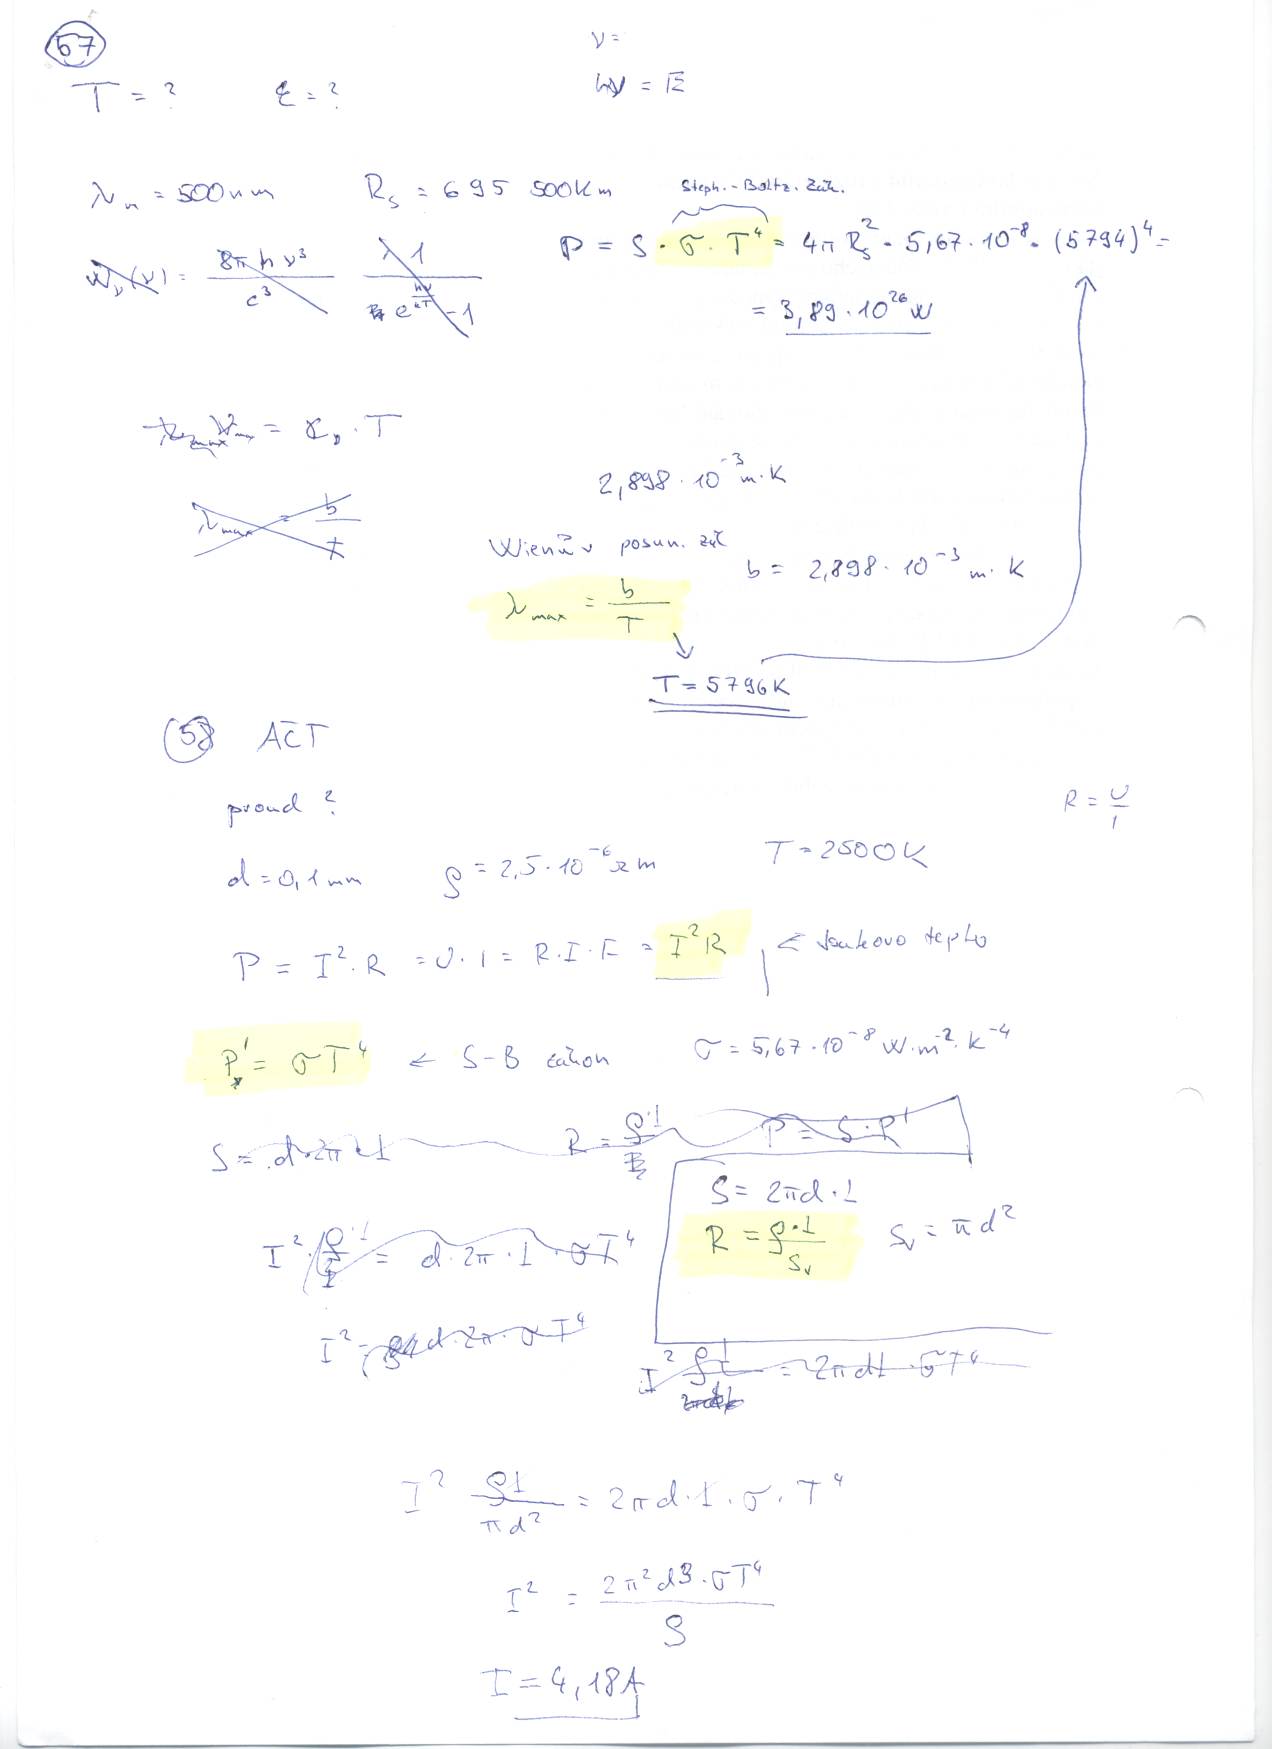 57
ν =
hν = E
T = ? ε = ?
λm = 500nm Rs = 695 500Km
Steph.-Boltz. Zák.
P = S · σ · T⁴ = 4π Rs² · 5,67 · 10⁻⁸ · (5794)⁴ =
= 3,89 · 10²⁶ W
wν(ν) = 8π h ν³ / c³ 1 / e^(hν/kT) - 1
= · T
λmax = b / T
2,898 · 10⁻³ m·K
Wienův posun. zák
b = 2,898 · 10⁻³ m · K
λmax = b / T
T = 5796K
58 AČT
proud ?
R = U / I
d = 0,1mm ρ = 2,5 · 10⁻⁶ Ωm T = 2500K
P = I² · R = U · I = R · I · I = I² R ← Joulovo teplo
P' = σT⁴ ← S-B zákon σ = 5,67 · 10⁻⁸ W·m⁻²·K⁻⁴
S = d·2π·l R = ρ·l P = S·P'
S = 2πd · l
R = ρ·l / Sv Sv = πd²
I² · ρ·l = d · 2π · l · σT⁴
I² = d·2π · σT⁴
I² ρl = 2πdl · σT⁴
I² ρl / πd² = 2πd · l · σ · T⁴
I² = 2π²d3 · σT⁴ / ρ
I = 4,18A